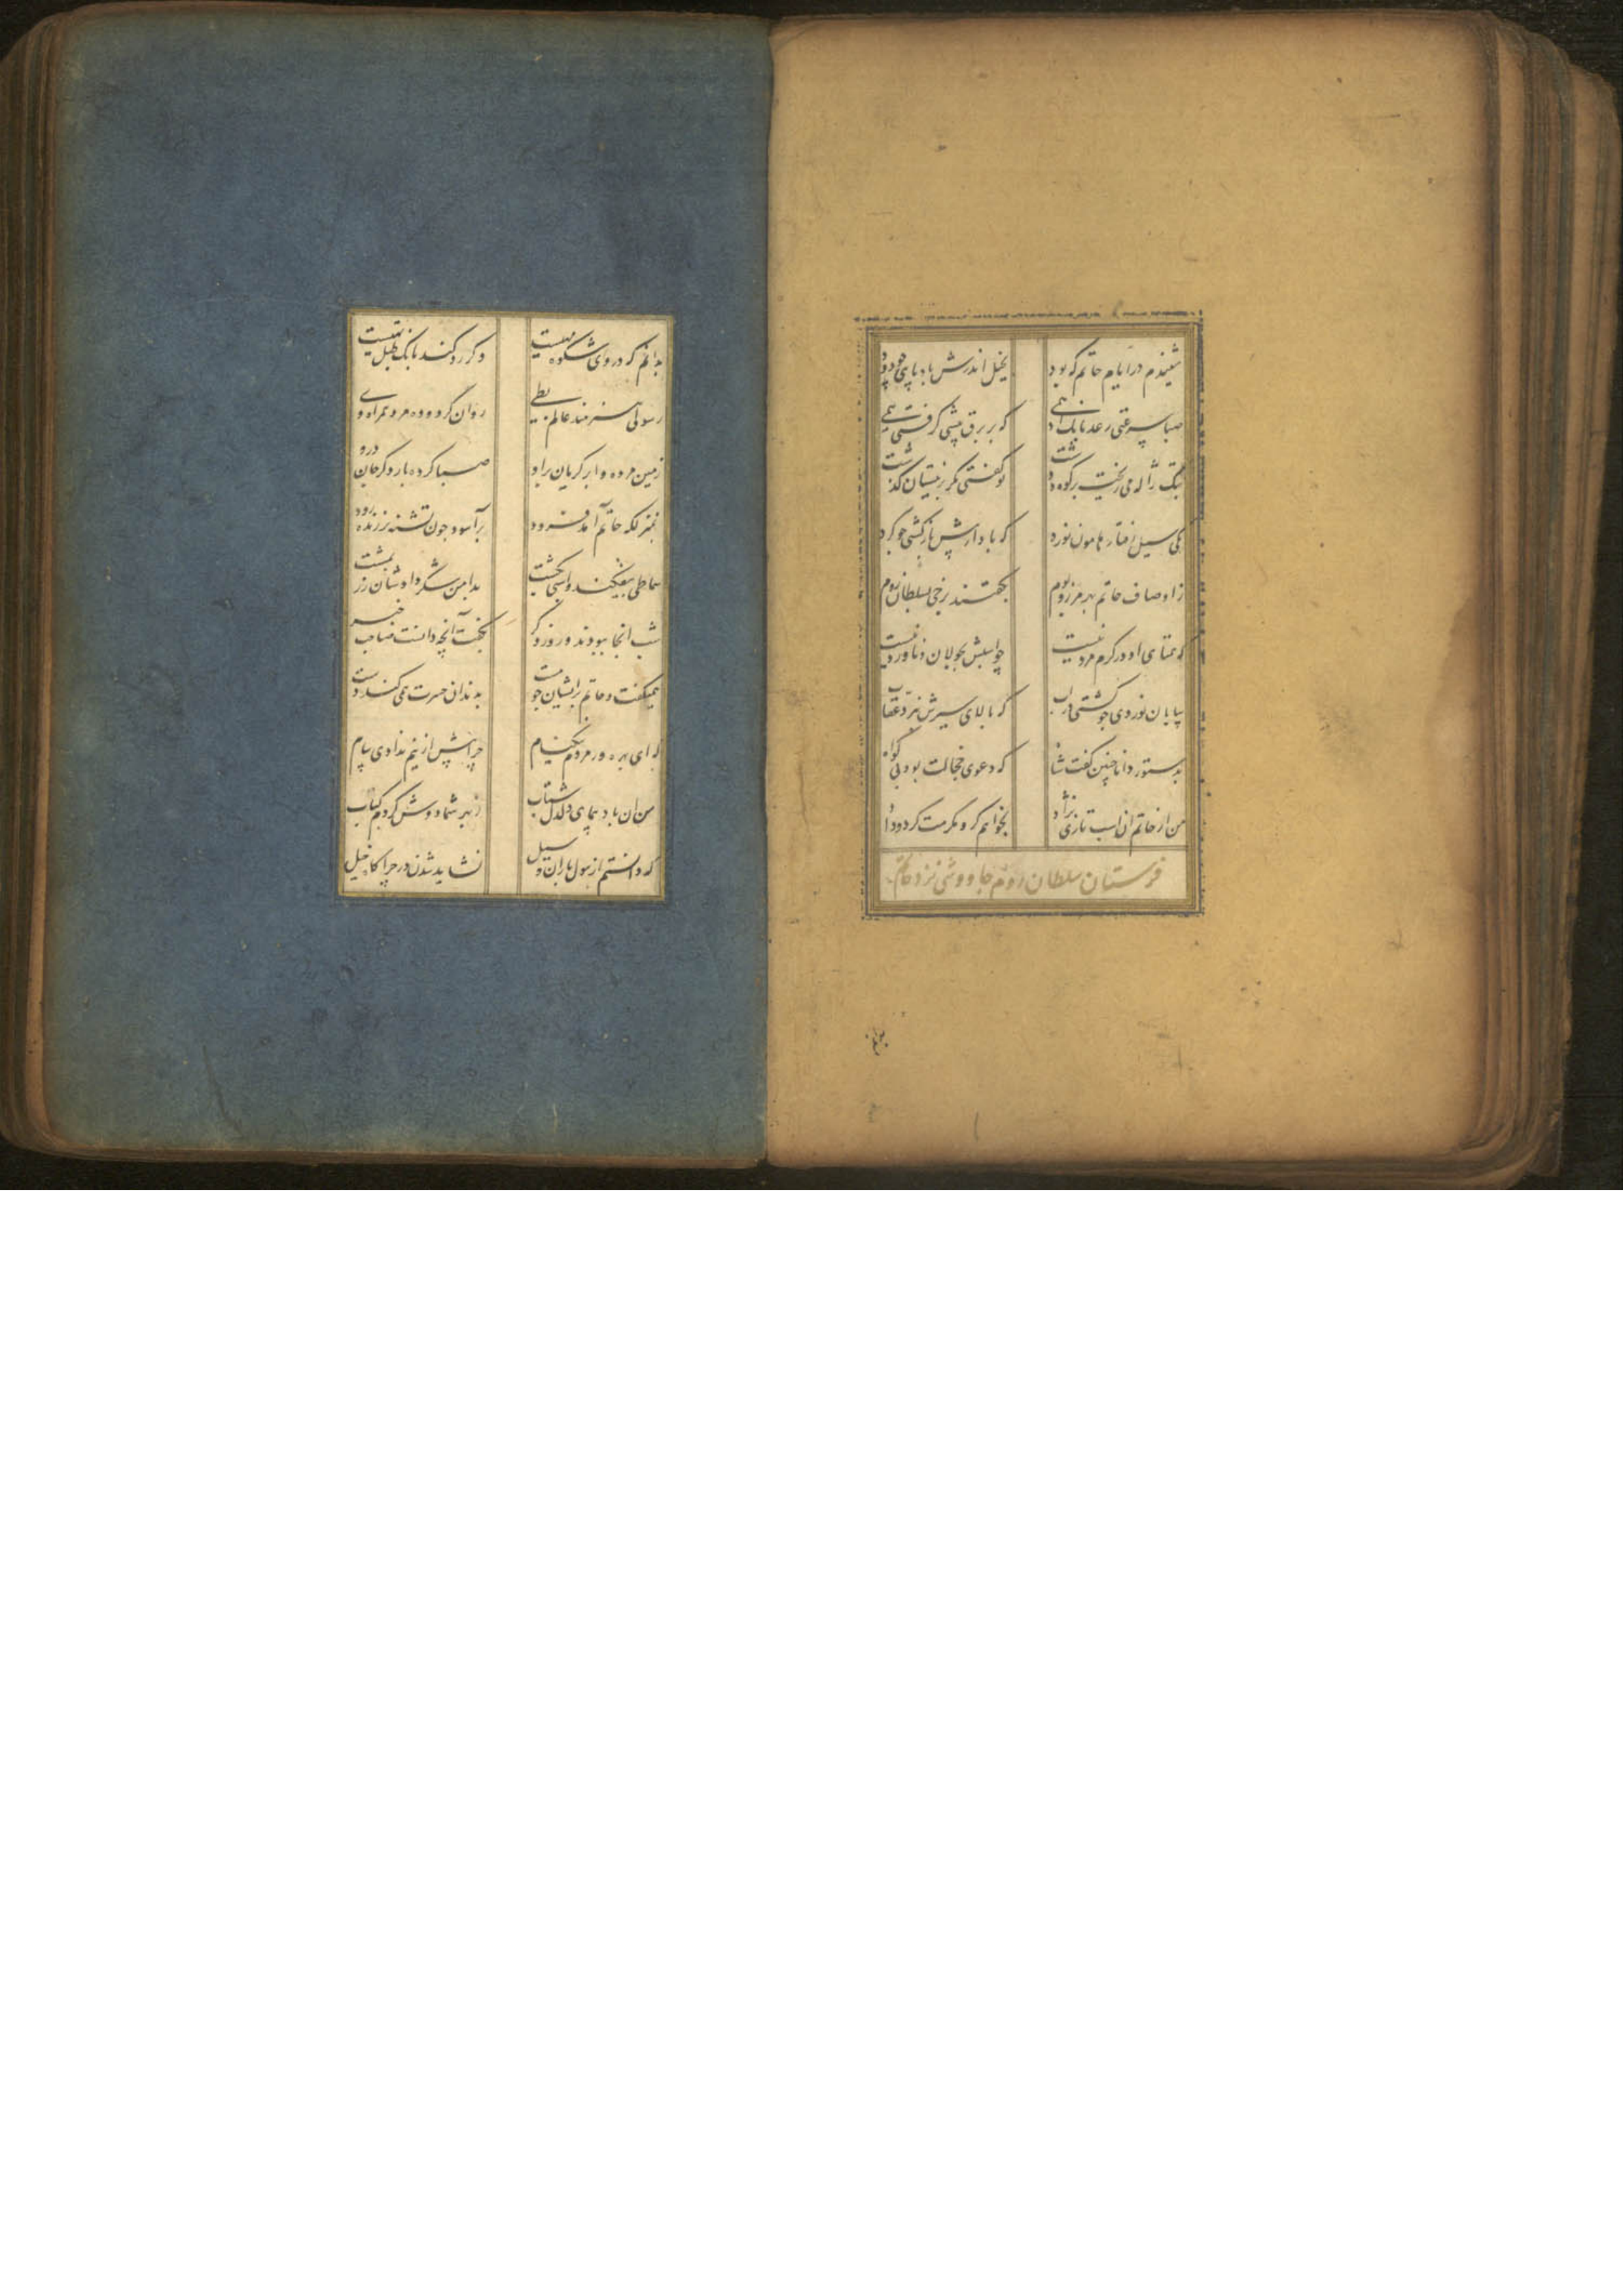 شنیدم در ایام حاتم که بود بخیل اندرش بادپایی چو دود
صبا سرعتی رعد بانک ادهمی که بر برق پیشی گرفتی همی
بتک ژاله می ریخت بر کوه و دشت تو گفتی مگر بر نیسان گذشت
یکی سیل رفتار هامون نورد که باد از پیش باز گشتی چو گرد
ز اوصاف حاتم بهر مرز و بوم بگفتند برخی بسلطان روم
که همتای او در کرم مرد نیست چو اسبش بجولان و ناورد نیست
بیابان نوردی چو کشتی در اب که بالای سیرش نپرد عقاب
بدستور دانا چنین گفت شاه که دعوی خجالت بود بی گواه
من از حاتم ان اسب تازی نژاد بخواهم گر او مکرمت کرد و داد
فرستادن سلطان روم جاووشی نزد حاتم
بدانم که در وی شکوه مهیست و گر رد کند بانک طبل تهیست
رسولی هنرمند عالم بطی روان کرد و ده مرد همراه وی
زمین مرده و ابر گریان برو صبا کرده بار دگر جان درو
بمنزلکه حاتم آمد فرود برآسود چون تشنه بر زنده رود
سماطی بیفکند و اسبی بکشت بدامن شکر دادشان زر بمشت
شب انجا ببودند و روز دگر بگفت آنچه دانست صاحب خبر
همیگفت و حاتم پریشان چو مست بدندان حسرت همی کند دست
که ای بهره ور مردم نیکنام چرا پیش ازینم ندادی پیام
من ان باد پیمای دلدل شتاب ز بهر شما دوش کردم کباب
که دانستم از هول باران و سیل نشاید شدن در چراگاه خیل